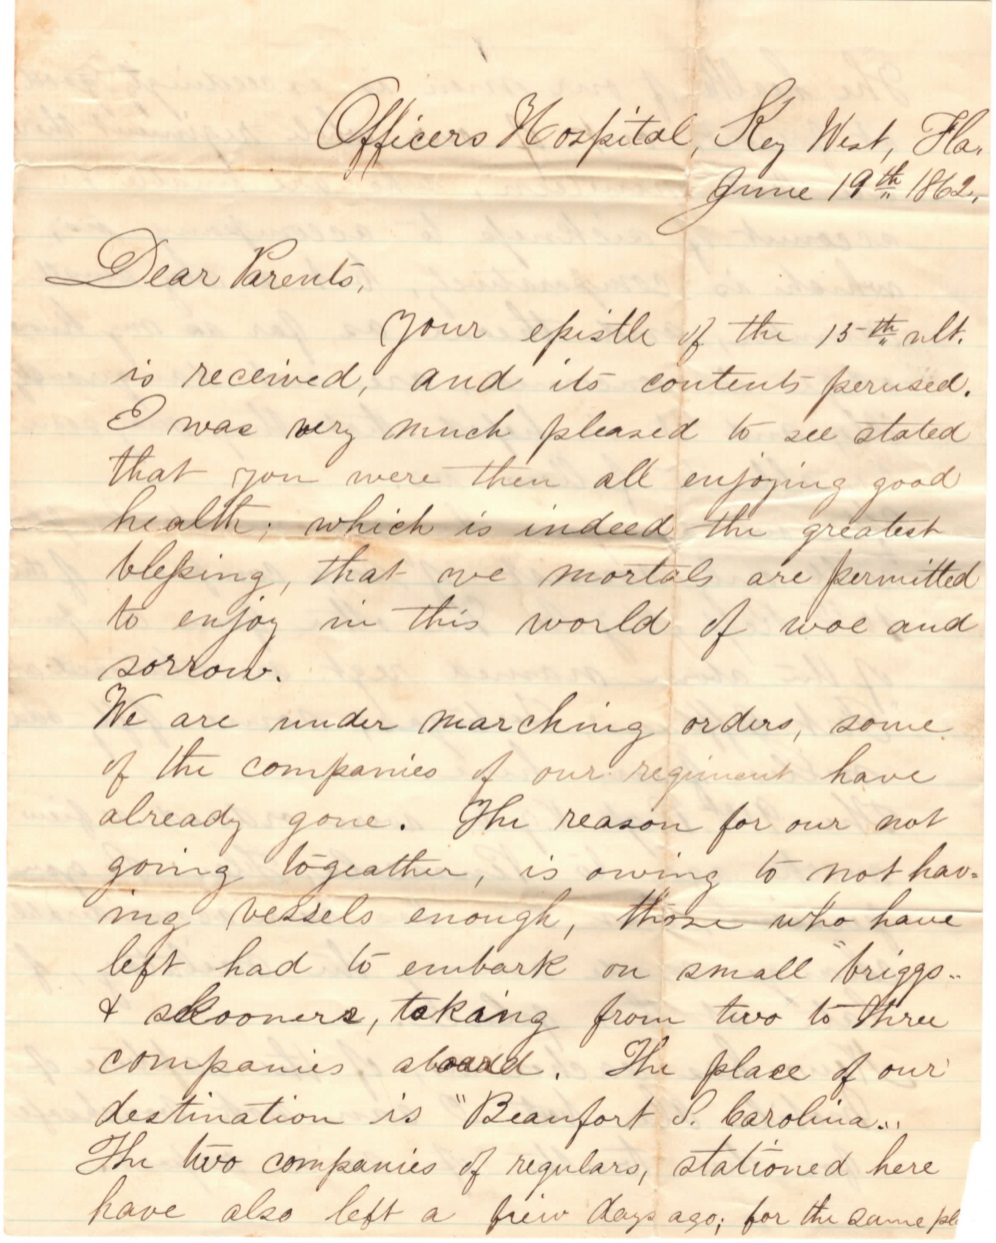 Officers Hospital, Key West, Fla.
June 19th 1862.
Dear Parents,
Your epistle of the 15th ult.
is received, and its contents perused.
I was very much pleased to see stated
that you were then all enjoying good
health; which is indeed the greatest
blessing, that we mortals are permitted
to enjoy in this world of woe and
sorrow.
We are under marching orders, some
of the companies of our regiment have
already gone. The reason for our not
going togeather, is owing to not hav=
ing vessels enough, those who have
left had to embark on small "briggs"
& skooners, taking from two to three
companies aboard. The place of our
destination is "Beaufort S. Carolina."
The two companies of regulars, stationed here
have also left a few days ago; for the same pl